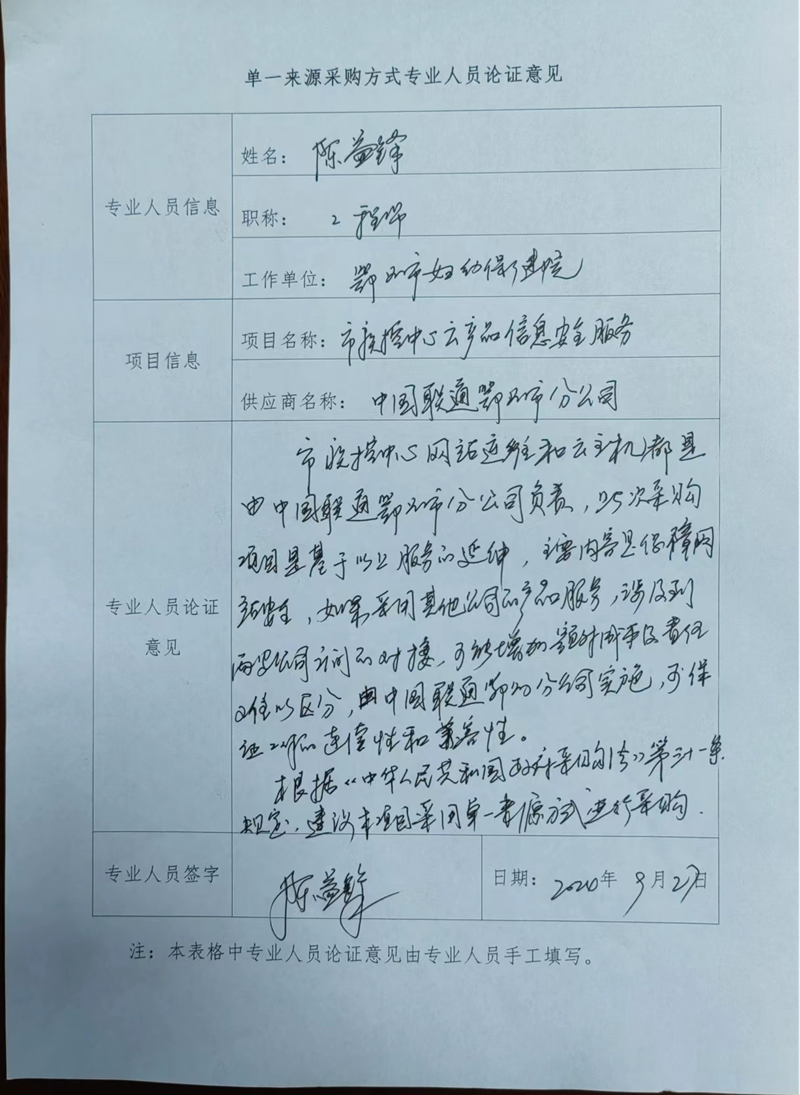 单一来源采购方式专业人员论证意见
专业人员信息
姓名： 陈益锋
职称： 工程师
工作单位： 鄂州市妇幼保健院
项目信息
项目名称： 市疾控中心云产品信息安全服务
供应商名称： 中国联通鄂州市分公司
专业人员论证
意见
市疾控中心网站运维和云主机都是
由中国联通鄂州市分公司负责，此次采购
项目是基于以上服务的延伸，主要内容是保障网
站安全，如果采用其他公司的产品服务，涉及到
两家公司之间的对接，可能增加额外成本及责任
难以区分，由中国联通鄂州分公司实施，可保
证工作的连续性和兼容性。
根据《中华人民共和国政府采购法》第三十一条
规定，建议本项目采用单一来源方式进行采购．
专业人员签字
陈益锋
日期： 2020年 9月27日
注：本表格中专业人员论证意见由专业人员手工填写。